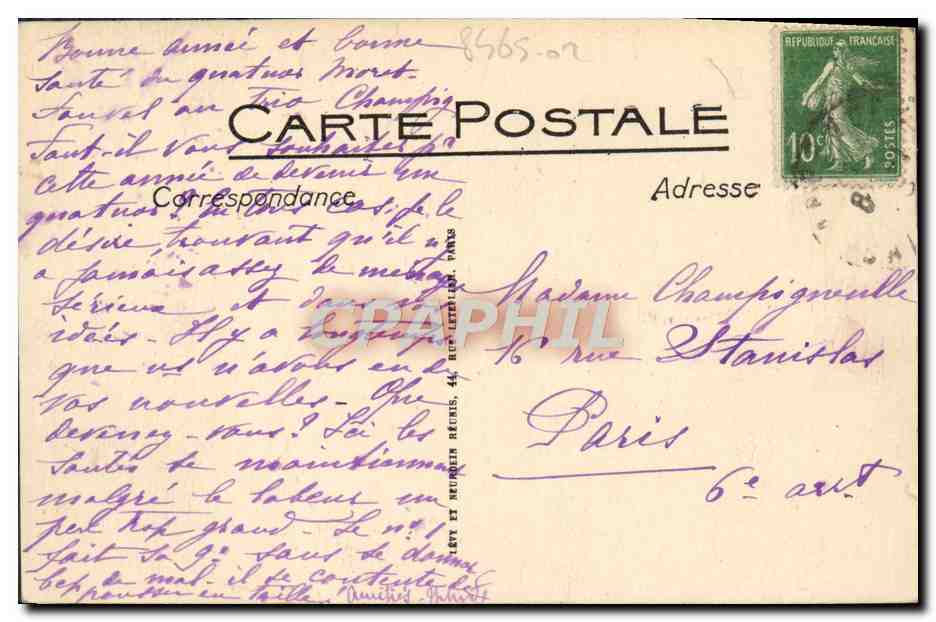 8465-02
REPUBLIQUE FRANÇAISE
10c
POSTES
CARTE POSTALE
Correspondance
Adresse
Bonne année et bonne
santé du quatuor Moret-
Fauvel au trio Champig
Faut-il vous souhaiter pr
cette année de devenir un
quatuor? En tous cas, je le
désire, trouvant qu'il n'y
a jamais assez de ménages
sérieux et dans nos
idées. Il y a longtemps
que ns n'avons eu de
vos nouvelles. Que
devenez-vous? Ici les
santés se maintiennent
malgré le labeur un
peu trop grand. Le no 1
fait sa 9e sans se donner
bcp de mal - il se contente de
pousser en taille. Amitiés
LÉVY ET NEURDEIN RÉUNIS, 44, RUE LETELLIER, PARIS
Madame Champigneulle
16 rue Stanislas
Paris
6e arrt
CPAPHIL